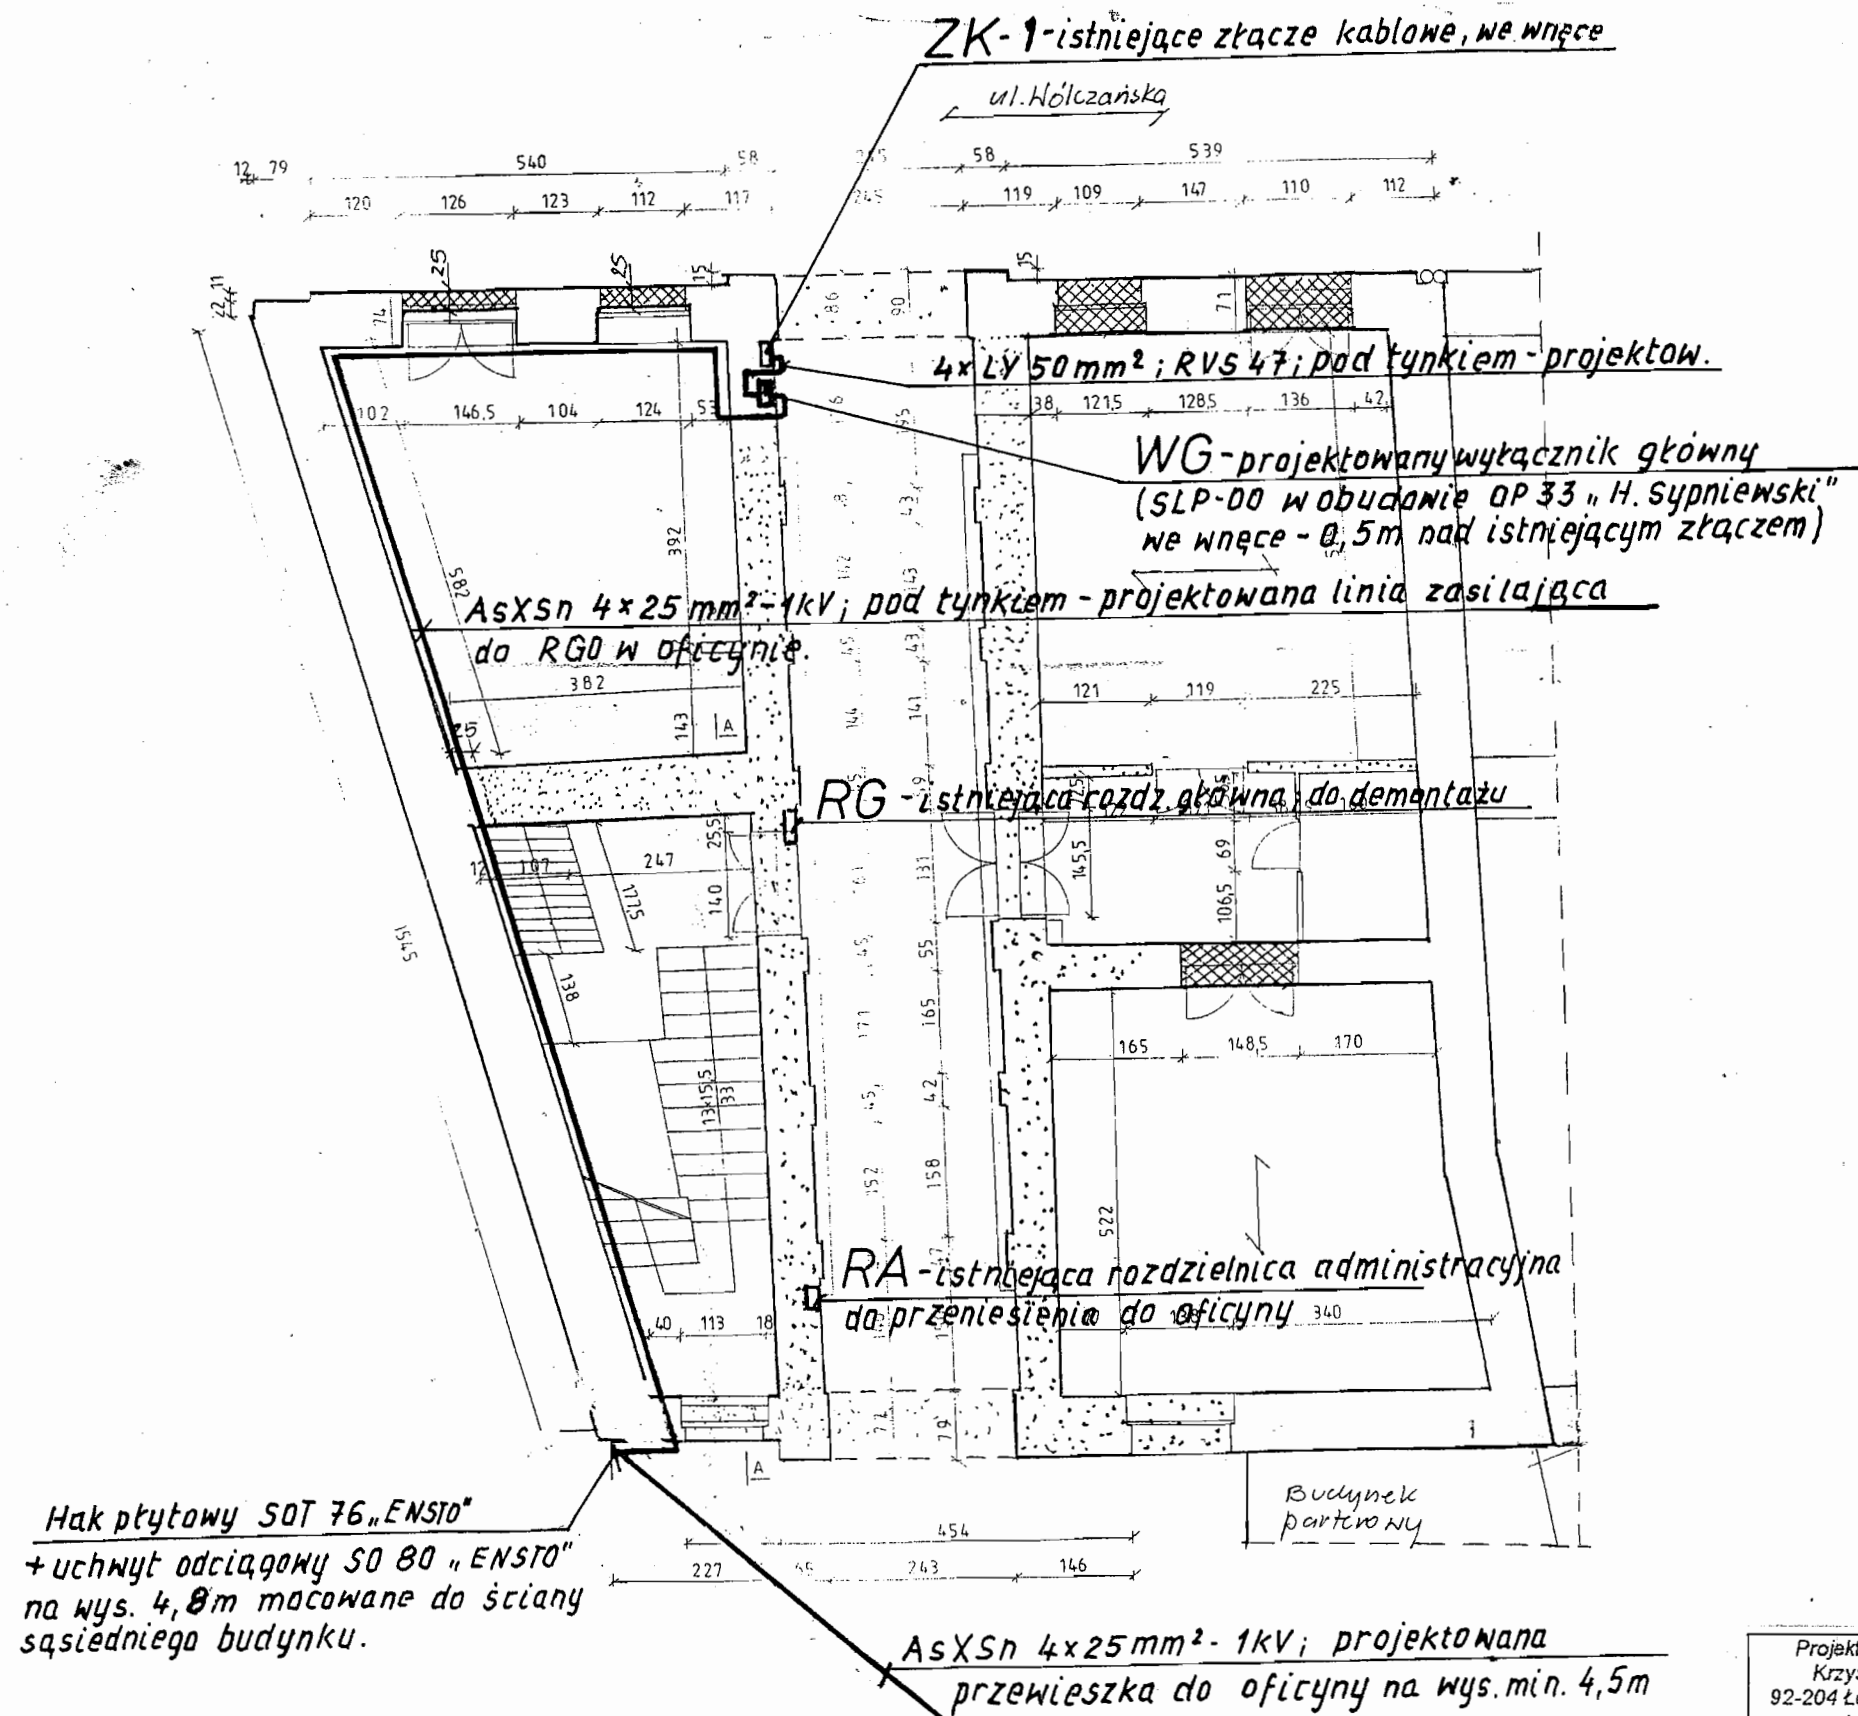 ZK-1-istniejące złącze kablowe, we wnęce
ul. Wólczańska
12 79 540 58 58 539
120 126 123 112 117 245 119 109 147 110 112
25 25 15 15
22 11
74 86 90 71
4x LY 50mm²; RVS 47; pod tynkiem - projektow.
102 146,5 104 124 53 38 121,5 128,5 136 42
WG-projektowany wyłącznik główny
(SLP-00 w obudowie OP 33 „H. Sypniewski"
we wnęce - 0,5m nad istniejącym złączem)
392
582
43
142 143
AsXSn 4x25mm²-1kV; pod tynkiem - projektowana linia zasilająca
do RG0 w oficynie.
45 43
382 121 119 225
25 143 A 144 141
RG - istniejąca rozdz. główna; do demontażu
25,5
12 107 247 131 145,5 69
177,5 140 106,5
1545
45 55
138
171 165
165 148,5 170
13x15,5
33
45 42
152 158
522
RA - istniejąca rozdzielnica administracyjna
do przeniesienia do oficyny
40 113 18 340
72 79
A
Budynek
parterowy
Hak płytowy SOT 76 „ENSTO"
+ uchwyt odciągowy SO 80 „ENSTO"
na wys. 4,8m mocowane do ściany
sąsiedniego budynku.
454
227 243 146
AsXSn 4x25mm²- 1kV; projektowana
przewieszka do oficyny na wys. min. 4,5m
Projekt
Krzys
92-204 Ł